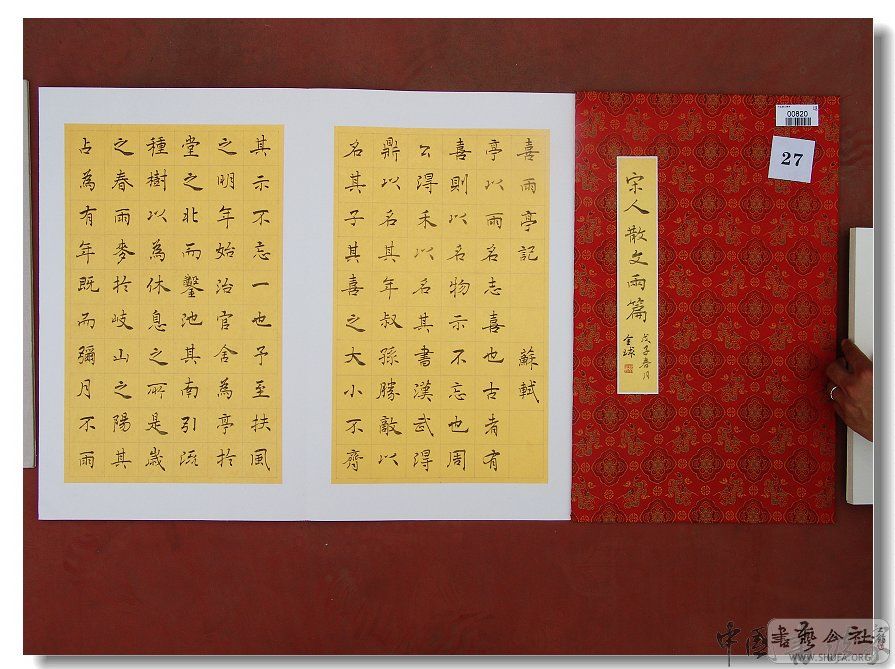 00820
27
宋人散文兩篇
戊子春月
喜雨亭記 蘇軾
亭以雨名志喜也古者有
喜則以名物示不忘也周
公得禾以名其書漢武得
鼎以名其年叔孫勝敵以
名其子其喜之大小不齊
其示不忘一也予至扶風
之明年始治官舍為亭於
堂之北而鑿池其南引流
種樹以為休息之所是歲
之春雨麥於岐山之陽其
占為有年既而彌月不雨
中国書藝公社
WWW.SHUFA.ORG